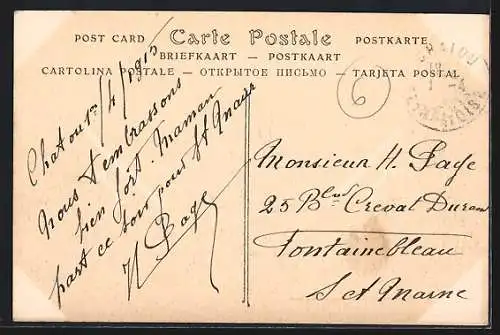 POST CARD Carte Postale POSTKARTE
BRIEFKAART — POSTKAART
CARTOLINA POSTALE — ОТКРЫТОЕ ПИСЬМО — TARJETA POSTAL
6
Chatou 1/4/1915
Nous t'embrassons
bien fort. Maman
part ce soir pour St Maur
H Page
Monsieur H. Page
25 Blvd Crevat Duran
Fontainebleau
S et Marne